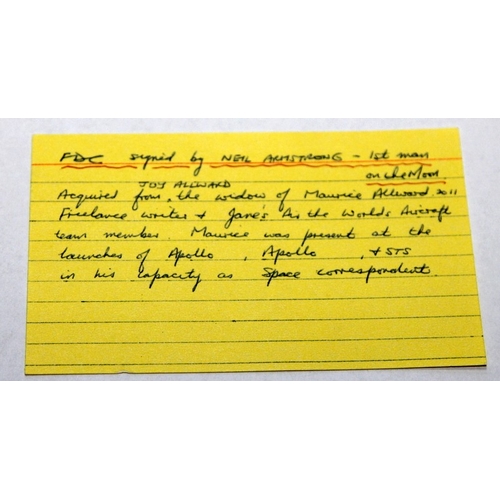 FDC signed by NEIL ARMSTRONG - 1st man
on the Moon.
JOY ALLWARD
Acquired from, the widow of Maurice Allward. 2011
Freelance writer & Jane's All the Worlds Aircraft
team member. Maurice was present at the
launches of Apollo , Apollo , & STS
in his capacity as Space correspondent.